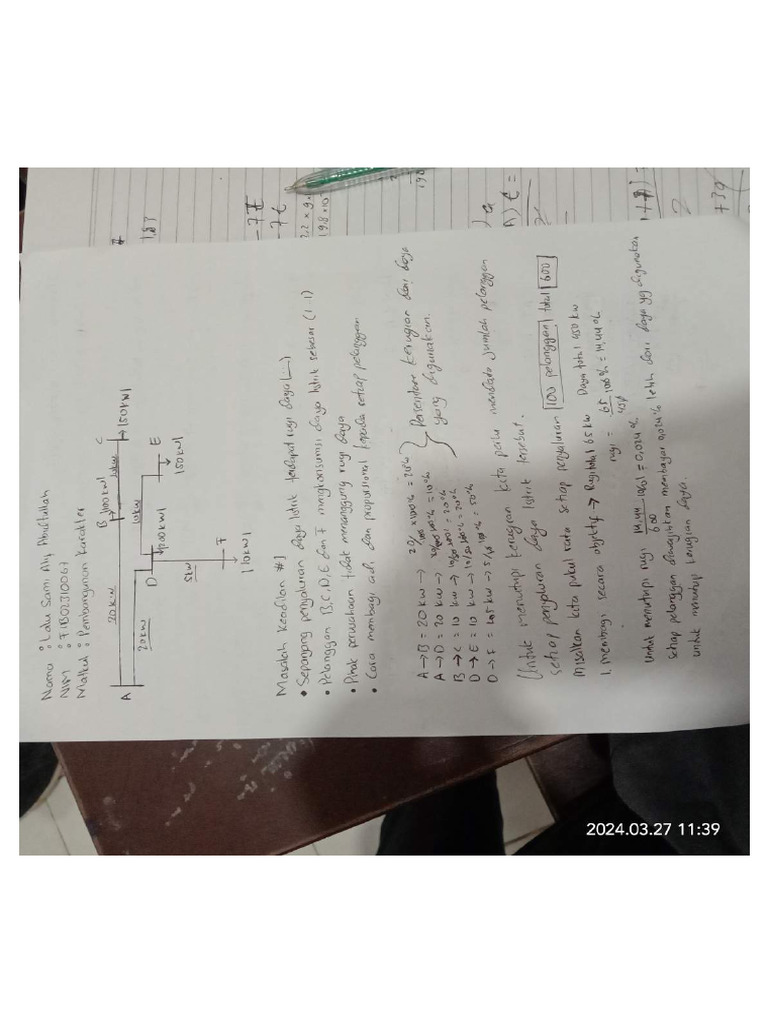 Nama : Lalu Sami Aly Abdullah
NIM : F1B02310067
Matkul : Pembangunan karakter
20kW
B
100kW
C
10kW
150kW
A
20kW
10kW
D
200kW
E
150kW
5kW
F
10kW
Masalah Keadilan #1
• Sepanjang penyaluran daya listrik terdapat rugi daya (...)
• Pelanggan B, C, D, E dan F mengkonsumsi daya listrik sebesar (↓)
• Pihak perusahaan tidak menanggung rugi daya
• Cara membagi adil dan proporsional kepada setiap pelanggan
A → B = 20 kW → 20/100 x 100% = 20%
A → D = 20 kW → 100% = 10%
B → C = 10 kW → = 20%
D → E = 10 kW → 100% = 20%
D → F = kW → 5/10 100% = 50%
} Persentase kerugian dari daya yang digunakan.
Untuk menutupi kerugian kita perlu mendata jumlah pelanggan
setiap penyaluran daya listrik tersebut.
Misalkan kita pukul rata setiap penyaluran 100 pelanggan total 600
1. membagi secara objektif → Rugi total 65 kW Daya total 450 kW
rugi = 65/450 100% = 14,44%
Untuk menutupi rugi 14,44 /600 = 0,024%
setiap pelanggan diwajibkan membayar 0,024% lebih dari daya yg digunakan
untuk menutup kerugian daya.
2024.03.27 11:39